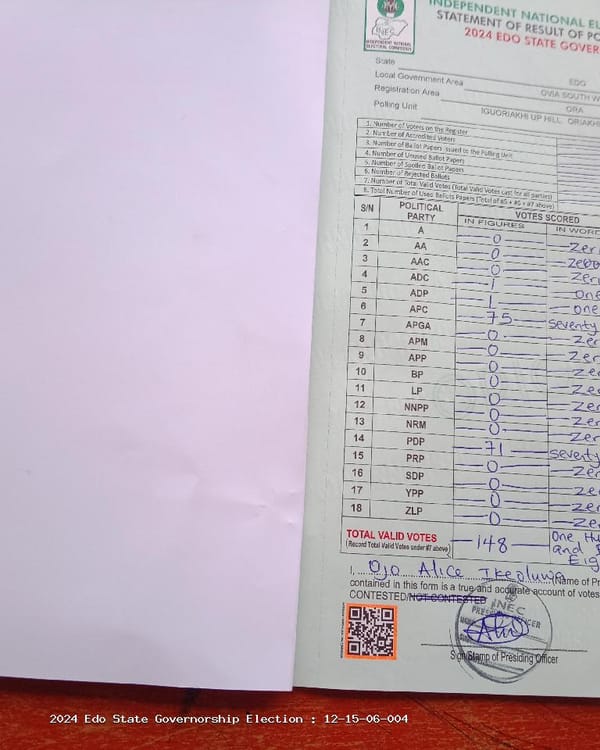 INDEPENDENT NATIONAL EL
STATEMENT OF RESULT OF PO
2024 EDO STATE GOVER
INEC
INDEPENDENT NATIONAL
ELECTORAL COMMISSION
State EDO
Local Government Area OVIA SOUTH W
Registration Area ORA
Polling Unit IGUORIAKHI UP HILL, ORIAKHI
1. Number of Voters on the Register
2. Number of Accredited Voters
3. Number of Ballot Papers Issued to the Polling Unit
4. Number of Unused Ballot Papers
5. Number of Spoiled Ballot Papers
6. Number of Rejected Ballots
7. Number of Total Valid Votes (Total Valid Votes cast for all parties)
8. Total Number of Used Ballots Papers (Total of #5 + #6 + #7 above)
S/N POLITICAL PARTY VOTES SCORED
IN FIGURES IN WORD
1 A 0 Zer
2 AA 0 Zero
3 AAC 0 Zer
4 ADC 1 one
5 ADP 1 one
6 APC 75 Seventy
7 APGA 0 Zer
8 APM 0 Zer
9 APP 0 Ze
10 BP 0 Ze
11 LP 0 Ze
12 NNPP 0 Zer
13 NRM 0 Zer
14 PDP 71 Seventy
15 PRP 0 Ze
16 SDP 0 Ze
17 YPP 0 Ze
18 ZLP 0 Ze
TOTAL VALID VOTES 148 One Hu
(Record Total Valid Votes under #7 above) and
Eig
I, Ojo Alice (Name of Pr
contained in this form is a true and accurate account of votes
CONTESTED/NOT CONTESTED
INEC
PRESIDING OFFICER
Sign/Stamp of Presiding Officer
2024 Edo State Governorship Election : 12-15-06-004